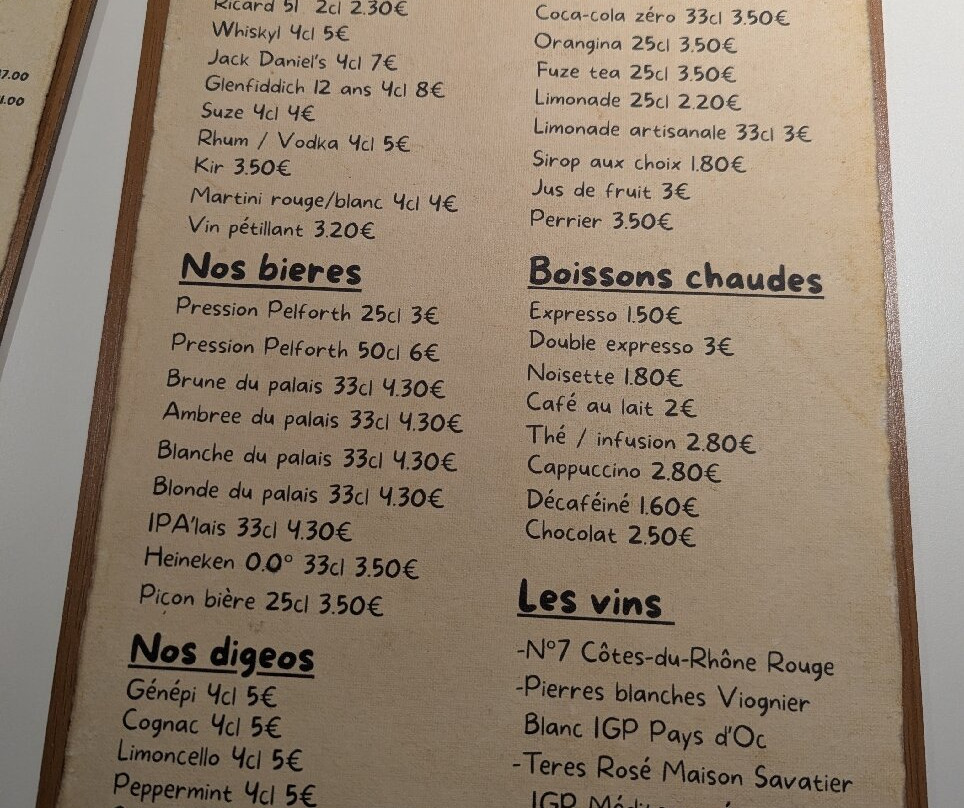 17.00
1.00
Ricard 51 2cl 2.30€
Whiskyl 4cl 5€
Jack Daniel's 4cl 7€
Glenfiddich 12 ans 4cl 8€
Suze 4cl 4€
Rhum / Vodka 4cl 5€
Kir 3.50€
Martini rouge/blanc 4cl 4€
Vin pétillant 3.20€
Nos bieres
Pression Pelforth 25cl 3€
Pression Pelforth 50cl 6€
Brune du palais 33cl 4.30€
Ambree du palais 33cl 4.30€
Blanche du palais 33cl 4.30€
Blonde du palais 33cl 4.30€
IPA'lais 33cl 4.30€
Heineken 0.0° 33cl 3.50€
Piçon bière 25cl 3.50€
Nos digeos
Génépi 4cl 5€
Cognac 4cl 5€
Limoncello 4cl 5€
Peppermint 4cl 5€
Coca-cola zéro 33cl 3.50€
Orangina 25cl 3.50€
Fuze tea 25cl 3.50€
Limonade 25cl 2.20€
Limonade artisanale 33cl 3€
Sirop aux choix 1.80€
Jus de fruit 3€
Perrier 3.50€
Boissons chaudes
Expresso 1.50€
Double expresso 3€
Noisette 1.80€
Café au lait 2€
Thé / infusion 2.80€
Cappuccino 2.80€
Décaféiné 1.60€
Chocolat 2.50€
Les vins
-N°7 Côtes-du-Rhône Rouge
-Pierres blanches Viognier
Blanc IGP Pays d'Oc
-Teres Rosé Maison Savatier
IGP